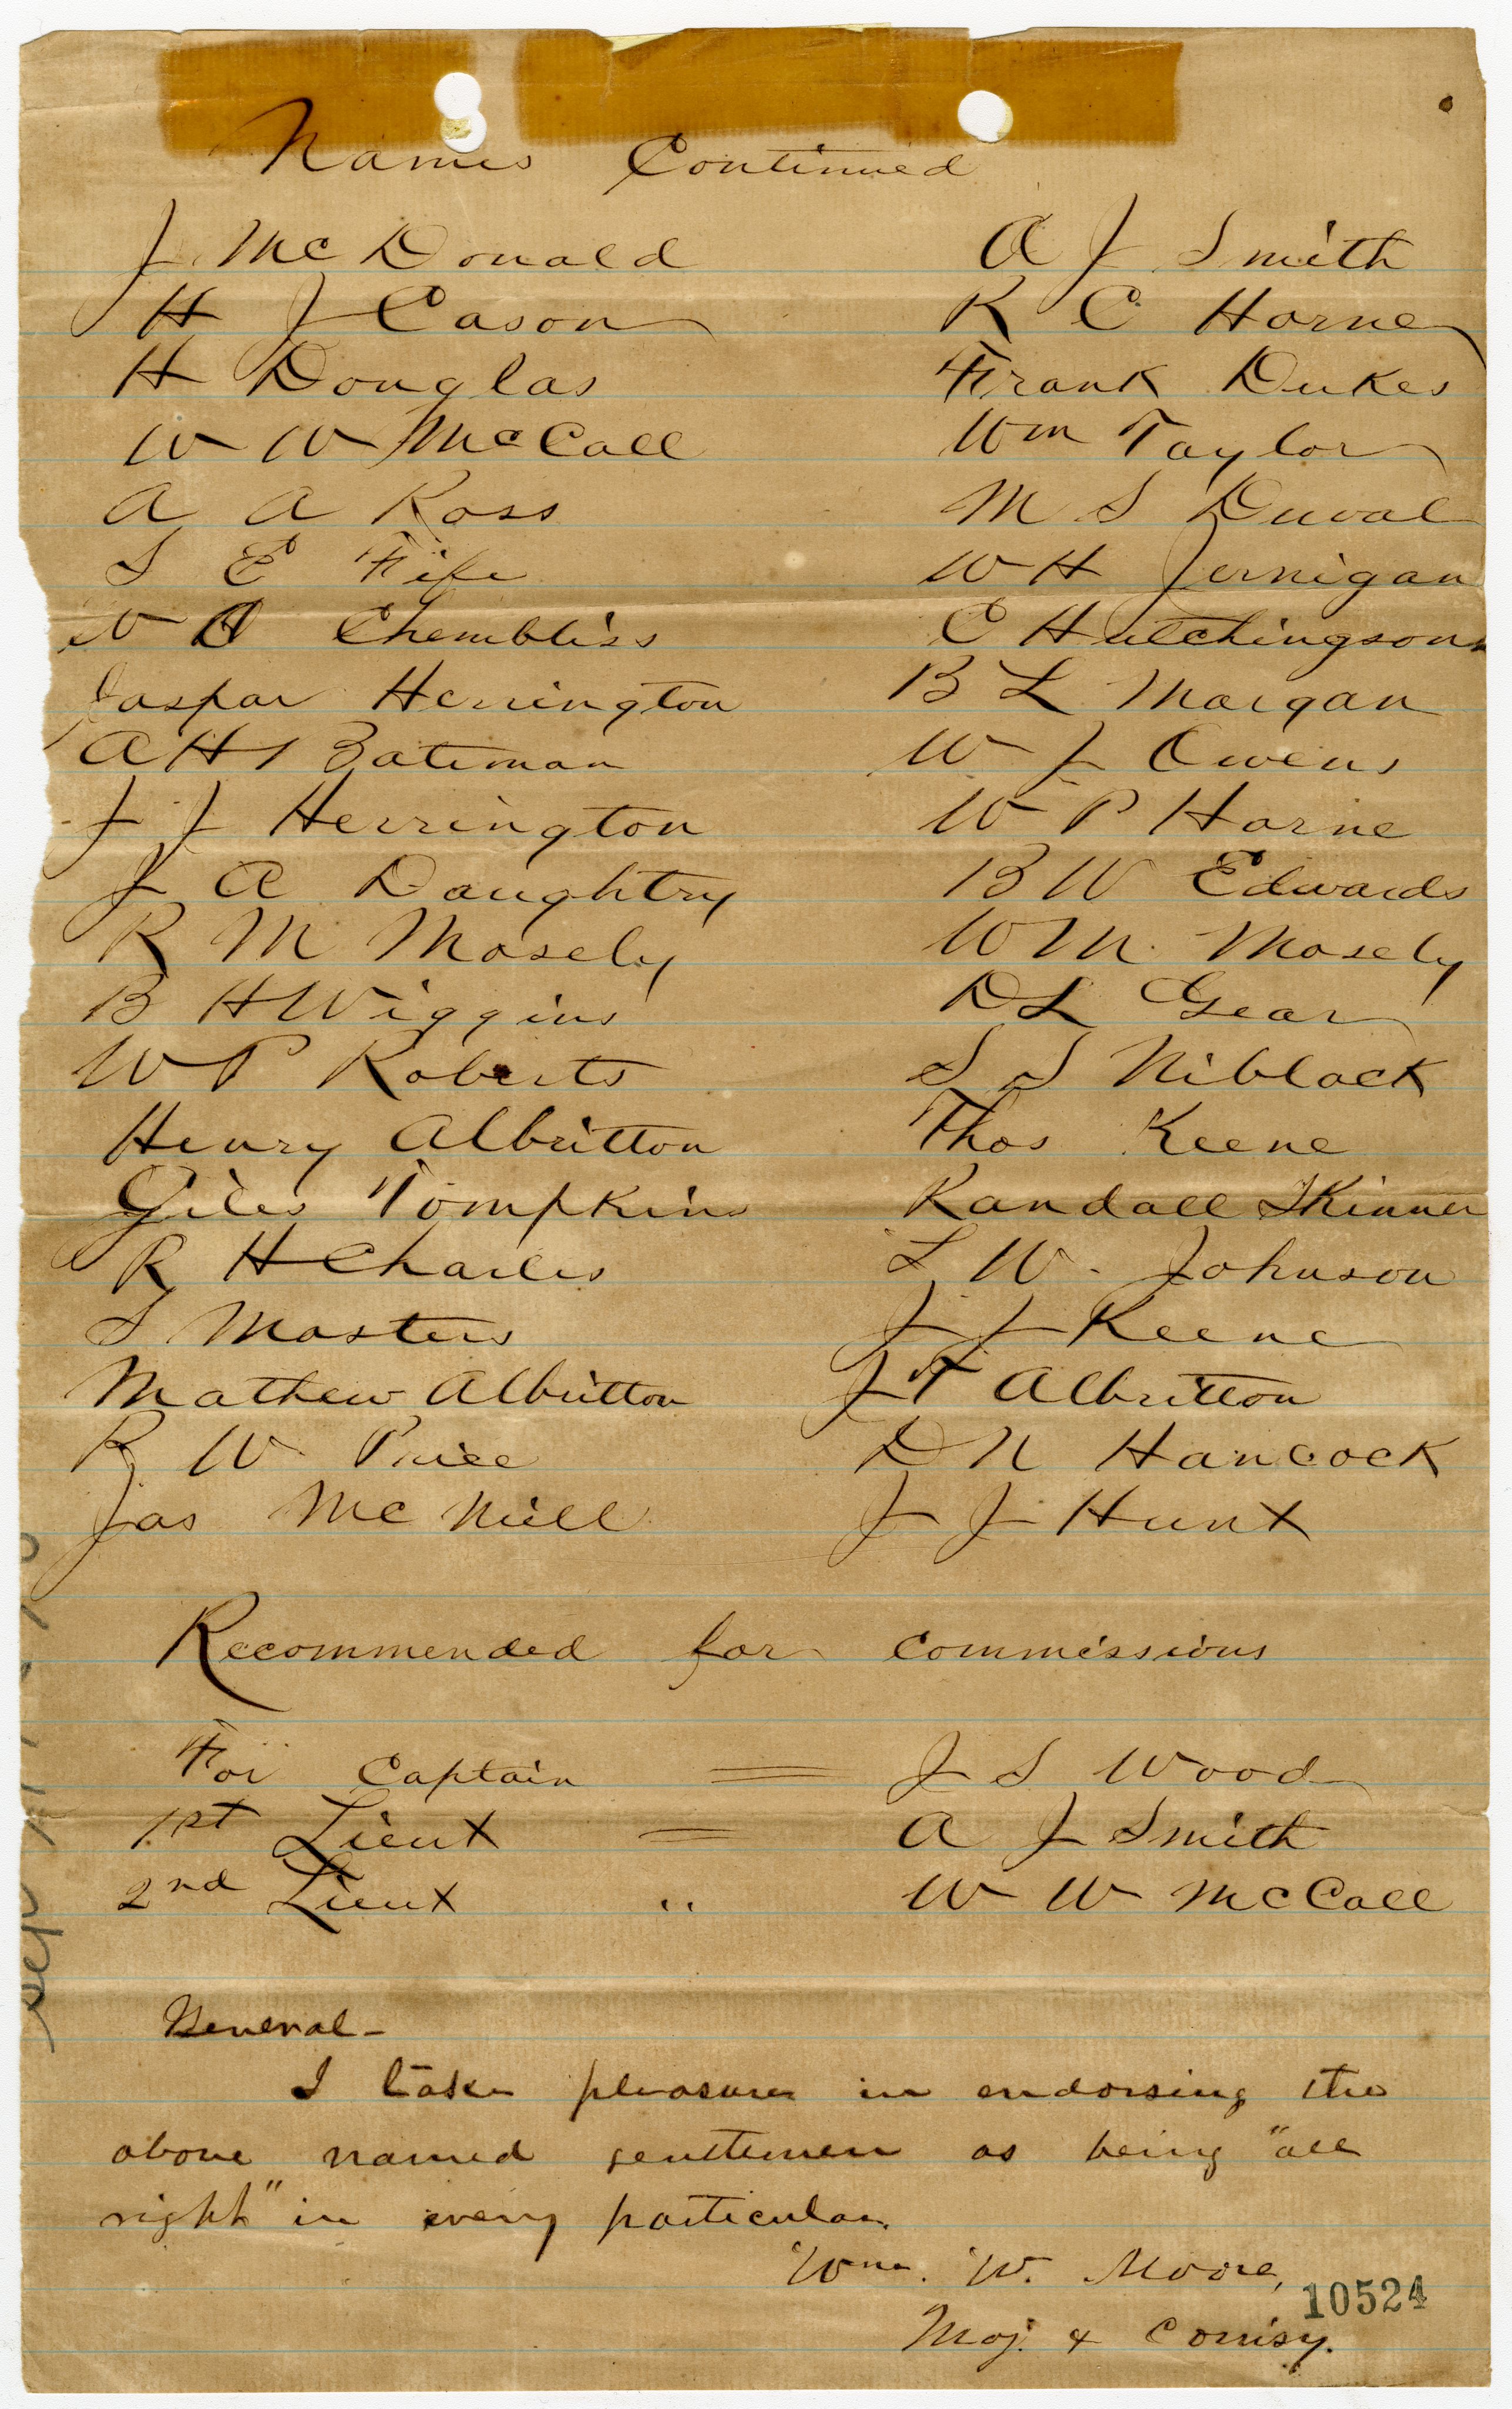 Names Continued
J McDonald A J Smith
H J Cason R C Horne
H Douglas Frank Dukes
W W McCall Wm Taylor
A A Ross M S Duval
S E Fife W H Jernigan
Chembliss C Hutchingson
Jaspar Herrington B L Morgan
A H Bateman W J Owens
J J Herrington W P Horne
J A Daughtry B W Edwards
R M Mosely W M. Mosely
B H Wiggins D L Gear
W P Roberts S S Niblack
Henry Albritton Thos Keene
Giles Tompkins Randall Skinner
R H Charles L W. Johnson
S Masters J J Keene
Mathew Albritton J T Albritton
R W Price D N Hancock
Jas McNeill J J Hunt
Recommended for commissions
For Captain = J S Wood
1st Lieut = A J Smith
2nd Lieut " W W McCall
General-
I take pleasure in endorsing the
above named gentlemen as being "all
right" in every particular.
Wm. W. Moore,
10524
Maj. & Comisy.